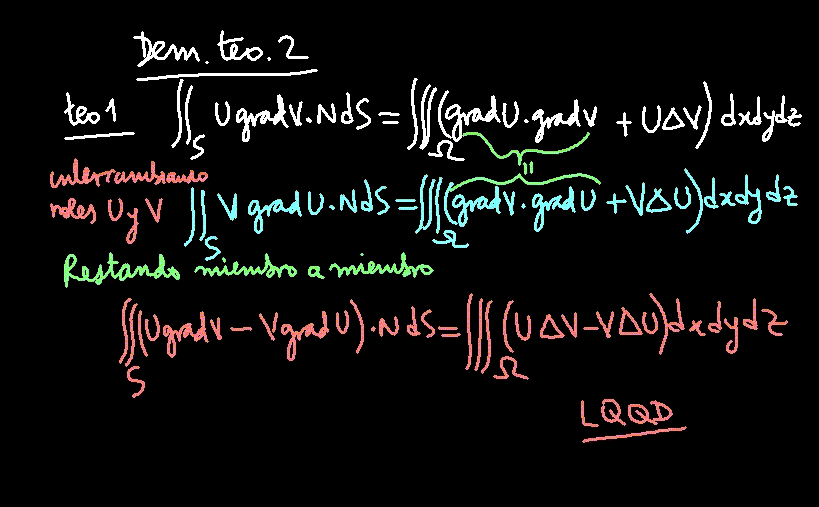 Dem. teo. 2
teo 1 ∬_S U grad V · N dS = ∭_Ω (grad U · grad V + U ΔV) dx dy dz
=
intercambiando
roles U y V ∬_S V grad U · N dS = ∭_Ω (grad V · grad U + V ΔU) dx dy dz
Restando miembro a miembro
∭_S (U grad V − V grad U) · N dS = ∭_Ω (U ΔV − V ΔU) dx dy dz
LQQD